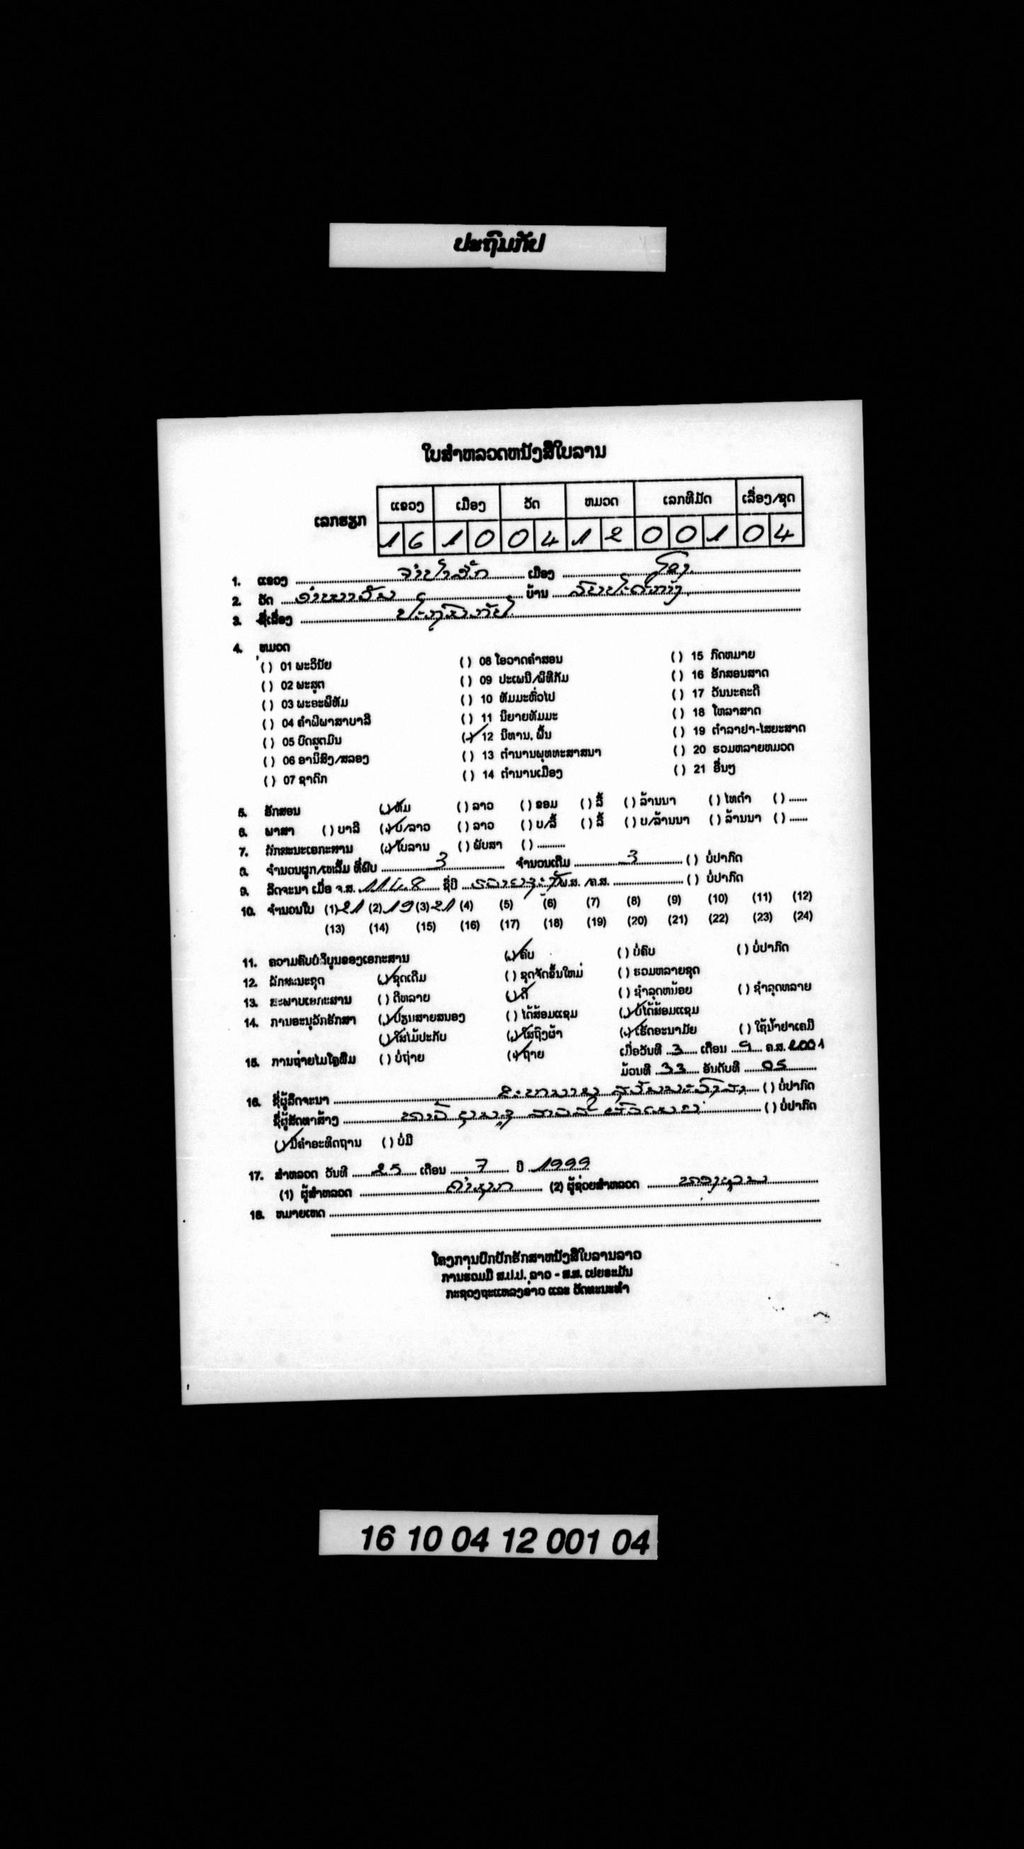 ປະຖົມກັປ
ໃບສຳຫລວດຫນັງສືໃບລານ
ແຂວງ ເມືອງ ວັດ ຫມວດ ເລກທີມັດ ເລື່ອງ/ຊຸດ
ເລກຮຽກ 1 6 1 0 0 4 1 2 0 0 1 0 4
1. ແຂວງ ຈຳປາສັກ ເມືອງ ໂຂງ
2. ວັດ ບ້ານ
3. ຊື່ເລື່ອງ ປະຖົມກັປ
4. ຫມວດ
( ) 01 ພະວິນັຍ ( ) 08 ໂອວາດຄຳສອນ ( ) 15 ກົດຫມາຍ
( ) 02 ພະສູດ ( ) 09 ປະເພນີ/ພິທີກັມ ( ) 16 ອັກສອນສາດ
( ) 03 ພະອະພິທັມ ( ) 10 ທັມມະທົ່ວໄປ ( ) 17 ວັນນະຄະດີ
( ) 04 ຄຳພີພາສາບາລີ ( ) 11 ນິຍາຍທັມມະ ( ) 18 ໂຫລາສາດ
( ) 05 ບົດສູດມົນ (✓) 12 ນິທານ, ພື້ນ ( ) 19 ຕຳລາຢາ-ໄສຍະສາດ
( ) 06 ອານິສົງ/ສລອງ ( ) 13 ຕຳນານພຸທທະສາສນາ ( ) 20 ຮວມຫລາຍຫມວດ
( ) 07 ຊາດົກ ( ) 14 ຕຳນານເມືອງ ( ) 21 ອື່ນໆ
5. ອັກສອນ (✓) ທັມ ( ) ລາວ ( ) ຂອມ ( ) ລື້ ( ) ລ້ານນາ ( ) ໄທດຳ ( ) ......
6. ພາສາ ( ) ບາລີ (✓) ບ/ລາວ ( ) ລາວ ( ) ບ/ລື້ ( ) ລື້ ( ) ບ/ລ້ານນາ ( ) ລ້ານນາ ( ) ......
7. ລັກສະນະເອກະສານ (✓) ໃບລານ ( ) ພັບສາ ( ) .........
8. ຈຳນວນຜູກ/ເຫລັ້ມ ທີ່ພົບ 3 ຈຳນວນເຕີມ 3 ( ) ບໍ່ປາກົດ
9. ລິດຈະນາ ເມື່ອ ຈ.ສ. 1148 ຊື່ປີ ພ.ສ. /ຄ.ສ. ( ) ບໍ່ປາກົດ
10. ຈຳນວນໃບ (1) 21 (2) 19 (3) 21 (4) (5) (6) (7) (8) (9) (10) (11) (12)
(13) (14) (15) (16) (17) (18) (19) (20) (21) (22) (23) (24)
11. ຄວາມຄົບບໍລິບູນຂອງເອກະສານ (✓) ຄົບ ( ) ບໍ່ຄົບ ( ) ບໍ່ປາກົດ
12. ລັກສະນະຊຸດ (✓) ຊຸດເດີມ ( ) ຊຸດຈັດຂຶ້ນໃຫມ່ ( ) ຮວມຫລາຍຊຸດ
13. ສະພາບເອກະສານ ( ) ດີຫລາຍ (✓) ດີ ( ) ຊຳລຸດຫນ້ອຍ ( ) ຊຳລຸດຫລາຍ
14. ການອະນຸລັກຮັກສາ (✓) ປ່ຽນສາຍສນອງ ( ) ໄດ້ສ້ອມແຊມ (✓) ບໍ່ໄດ້ສ້ອມແຊມ
(✓) ໃສ່ໄມ້ປະກັບ (✓) ໃສ່ຖົງຜ້າ (✓) ເຮັດອະນາມັຍ ( ) ໃຊ້ນ້ຳຢາເຄມີ
15. ການຖ່າຍໄມໂຄຼຟີມ ( ) ບໍ່ຖ່າຍ (✓) ຖ່າຍ ເມື່ອວັນທີ 3 ເດືອນ 9 ຄ.ສ. 2001
ມ້ວນທີ 33 ອັນດັບທີ 05
16. ຊື່ຜູ້ລິດຈະນາ ( ) ບໍ່ປາກົດ
ຊື່ຜູ້ສັດທາສ້າງ ( ) ບໍ່ປາກົດ
(✓) ມີຄຳອະທິດຖານ ( ) ບໍ່ມີ
17. ສຳຫລວດ ວັນທີ 25 ເດືອນ 7 ປີ 1999
(1) ຜູ້ສຳຫລວດ (2) ຜູ້ຊ່ອຍສຳຫລວດ
18. ຫມາຍເຫດ
ໂຄງການປົກປັກຮັກສາຫນັງສືໃບລານລາວ
ການຮ່ວມມື ສ.ປ.ປ. ລາວ - ສ.ສ. ເຢຍຣະມັນ
ກະຊວງຖະແຫລງຂ່າວ ແລະ ວັດທະນະທຳ
16 10 04 12 001 04